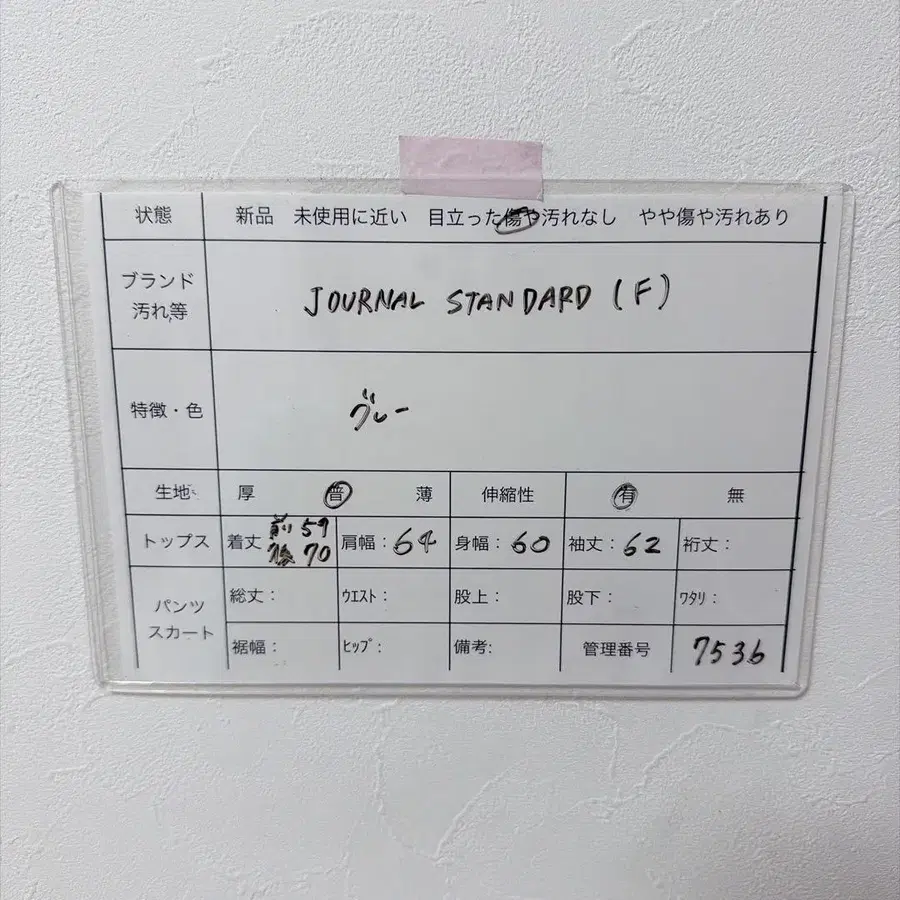 状態 新品 未使用に近い 目立った傷や汚れなし やや傷や汚れあり
ブランド
汚れ等
JOURNAL STANDARD (F)
特徴・色 グレー
生地 厚 普 薄 伸縮性 有 無
トップス 着丈 前 59 肩幅: 64 身幅: 60 袖丈: 62 裄丈:
後 70
パンツ
スカート
総丈: ウエスト: 股上: 股下: ワタリ:
裾幅: ヒップ: 備考: 管理番号 7536